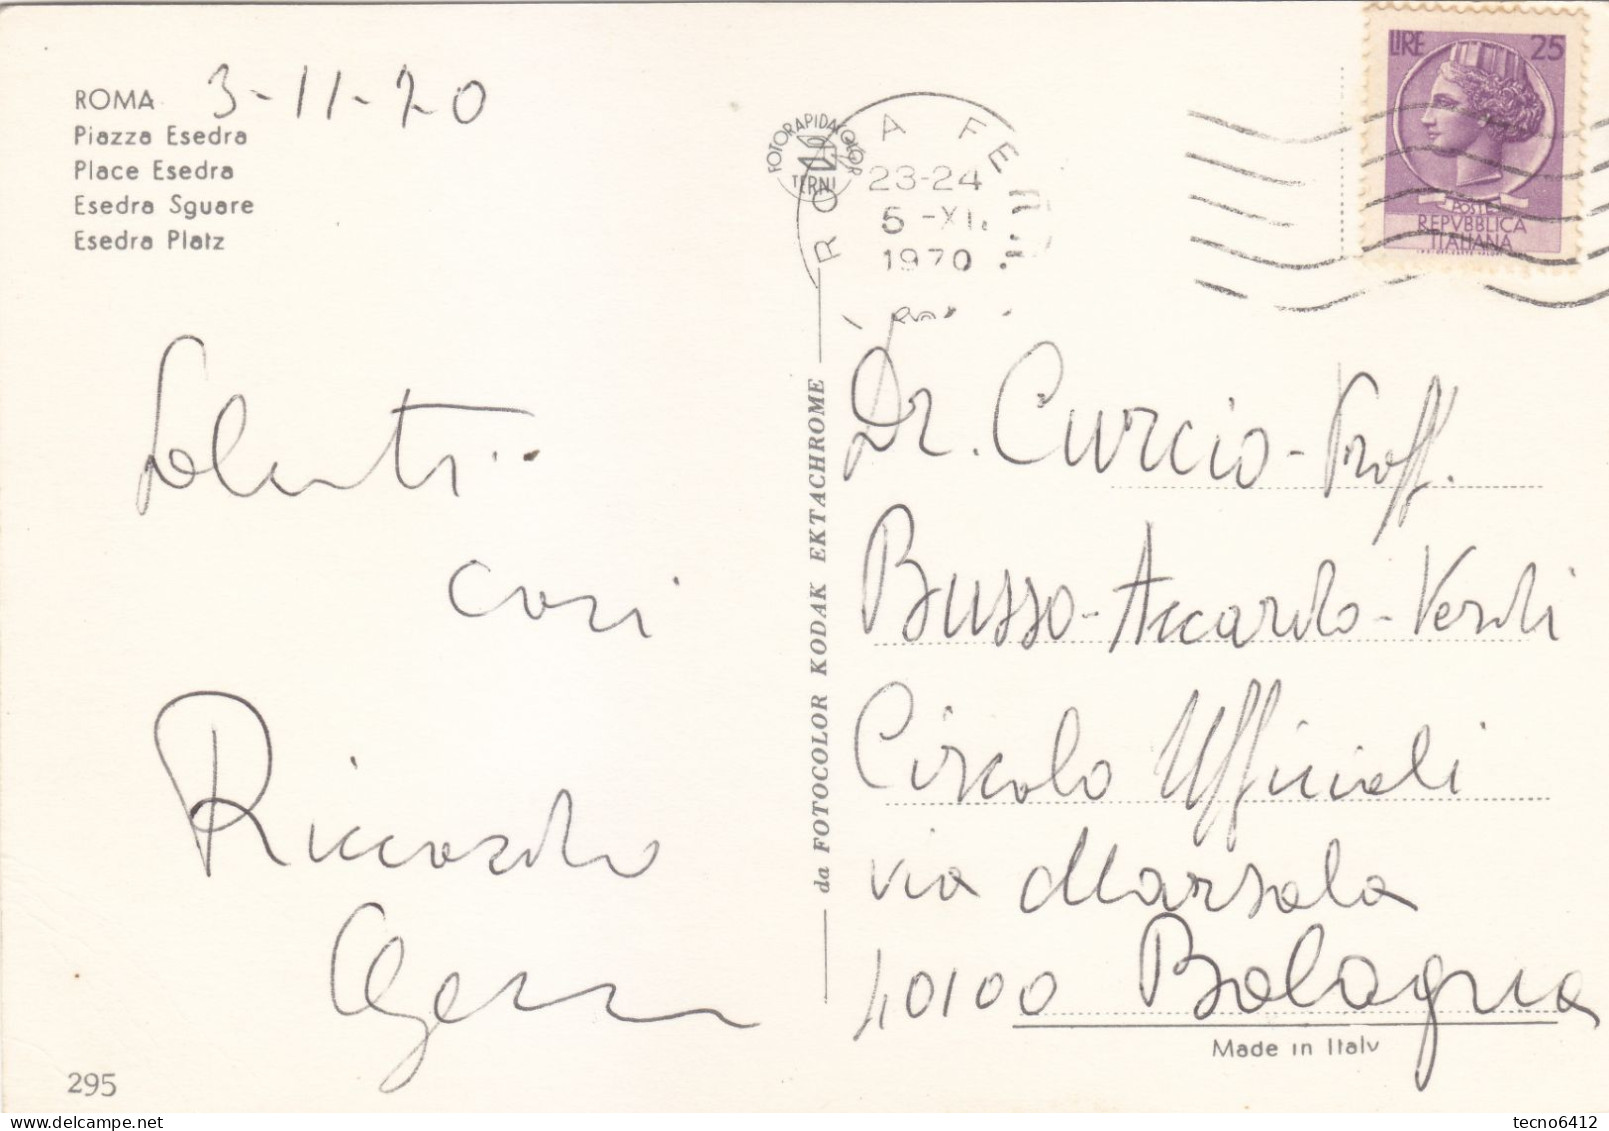 ROMA 3-11-70
Piazza Esedra
Place Esedra
Esedra Sguare
Esedra Platz
FOTORAPIDACOLOR
TERNI
ROMA FERR.
23-24
5-XI
1970
LIRE 25
POSTE
REPVBBLICA
ITALIANA
Saluti
cari
Riccardo
da FOTOCOLOR KODAK EKTACHROME
Dr. Curcio - Proff.
Busso - Accardo - Verdi
Circolo Ufficiali
via Marsala
40100 Bologna
Made in Italy
295
tecno6412